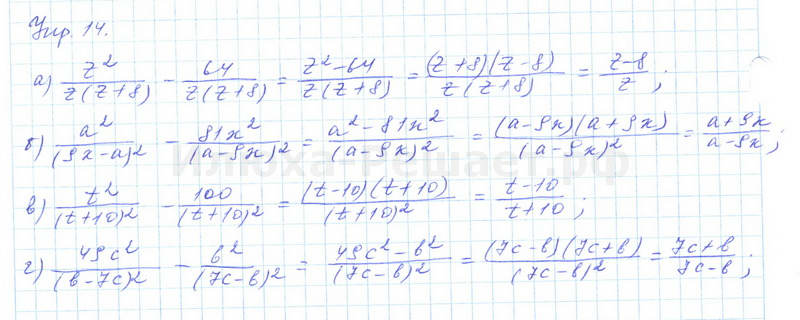 Упр. 14.
а) z²/(z(z+8)) − 64/(z(z+8)) = (z²−64)/(z(z+8)) = ((z+8)(z−8))/(z(z+8)) = (z−8)/z ;
б) a²/(9x−a)² − 81x²/(a−9x)² = (a²−81x²)/(a−9x)² = ((a−9x)(a+9x))/(a−9x)² = (a+9x)/(a−9x) ;
в) t²/(t+10)² − 100/(t+10)² = ((t−10)(t+10))/(t+10)² = (t−10)/(t+10) ;
г) 49c²/(в−7c)² − в²/(7c−в)² = (49c²−в²)/(7c−в)² = ((7c−в)(7c+в))/(7c−в)² = (7c+в)/(7c−в) ;
Илюха-Решает.рф